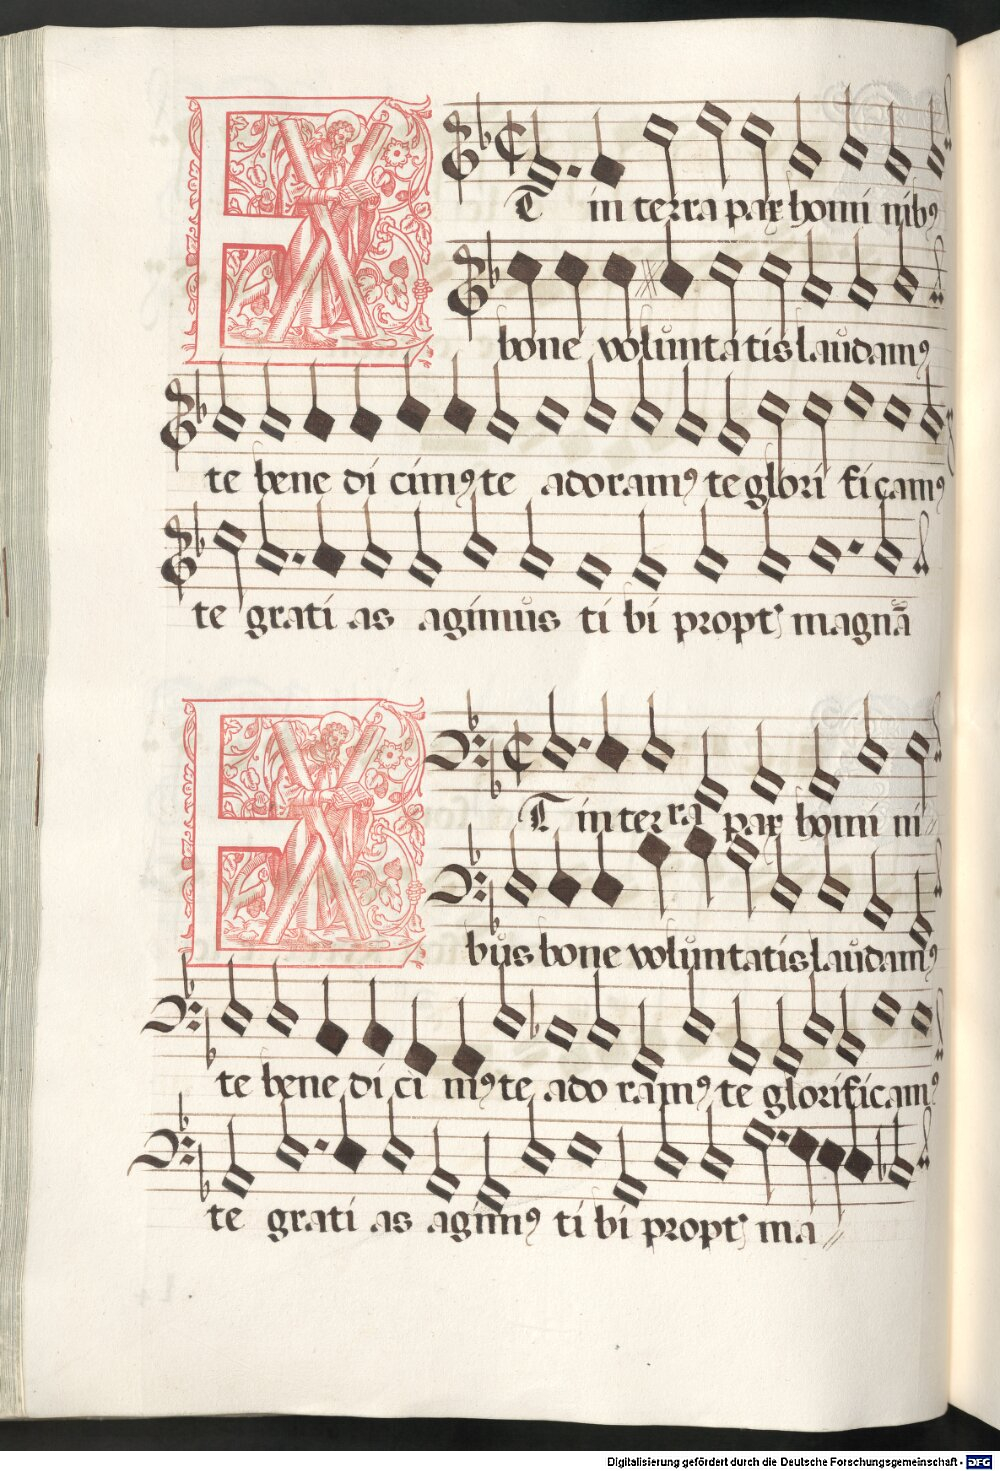 Et in terra pax homi nibꝰ
bone voluntatis laudamꝰ
te bene di cimꝰ te adoramꝰ te glori fi camꝰ
te grati as agimus ti bi propt magnā
Et in terra pax homi ni
bus bone voluntatis laudamꝰ
te bene di ci mꝰ te ado ramꝰ te glorificamꝰ
te grati as agimꝰ ti bi propt ma
Digitalisierung gefördert durch die Deutsche Forschungsgemeinschaft - DFG